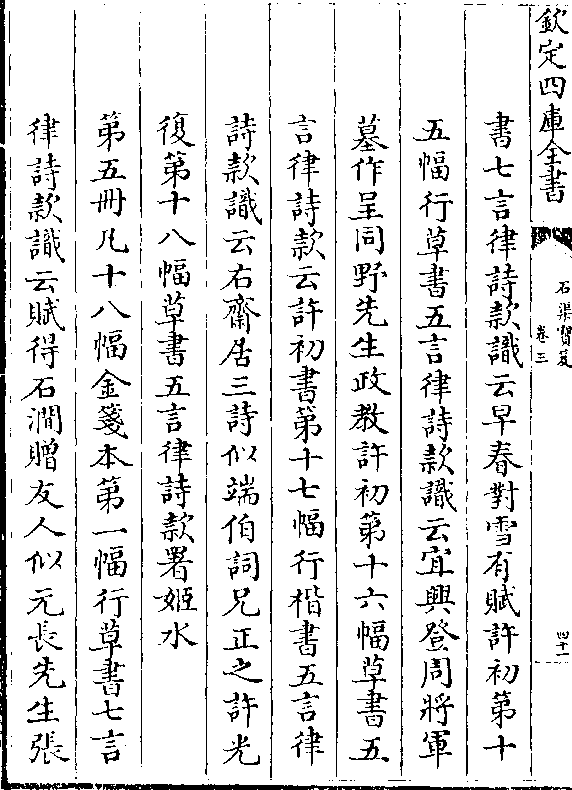 欽定四庫全書
石渠寶笈
卷三
四十一
書七言律詩款識云早春對雪有賦許初第十
五幅行草書五言律詩款識云宜興登周將軍
墓作呈同野先生政教許初第十六幅草書五
言律詩款云許初書第十七幅行楷書五言律
詩款識云右齋居三詩似端伯詞兄正之許光
復第十八幅草書五言律詩款署姬水
第五冊凡十八幅金箋本第一幅行草書七言
律詩款識云賦得石澗贈友人似元長先生張